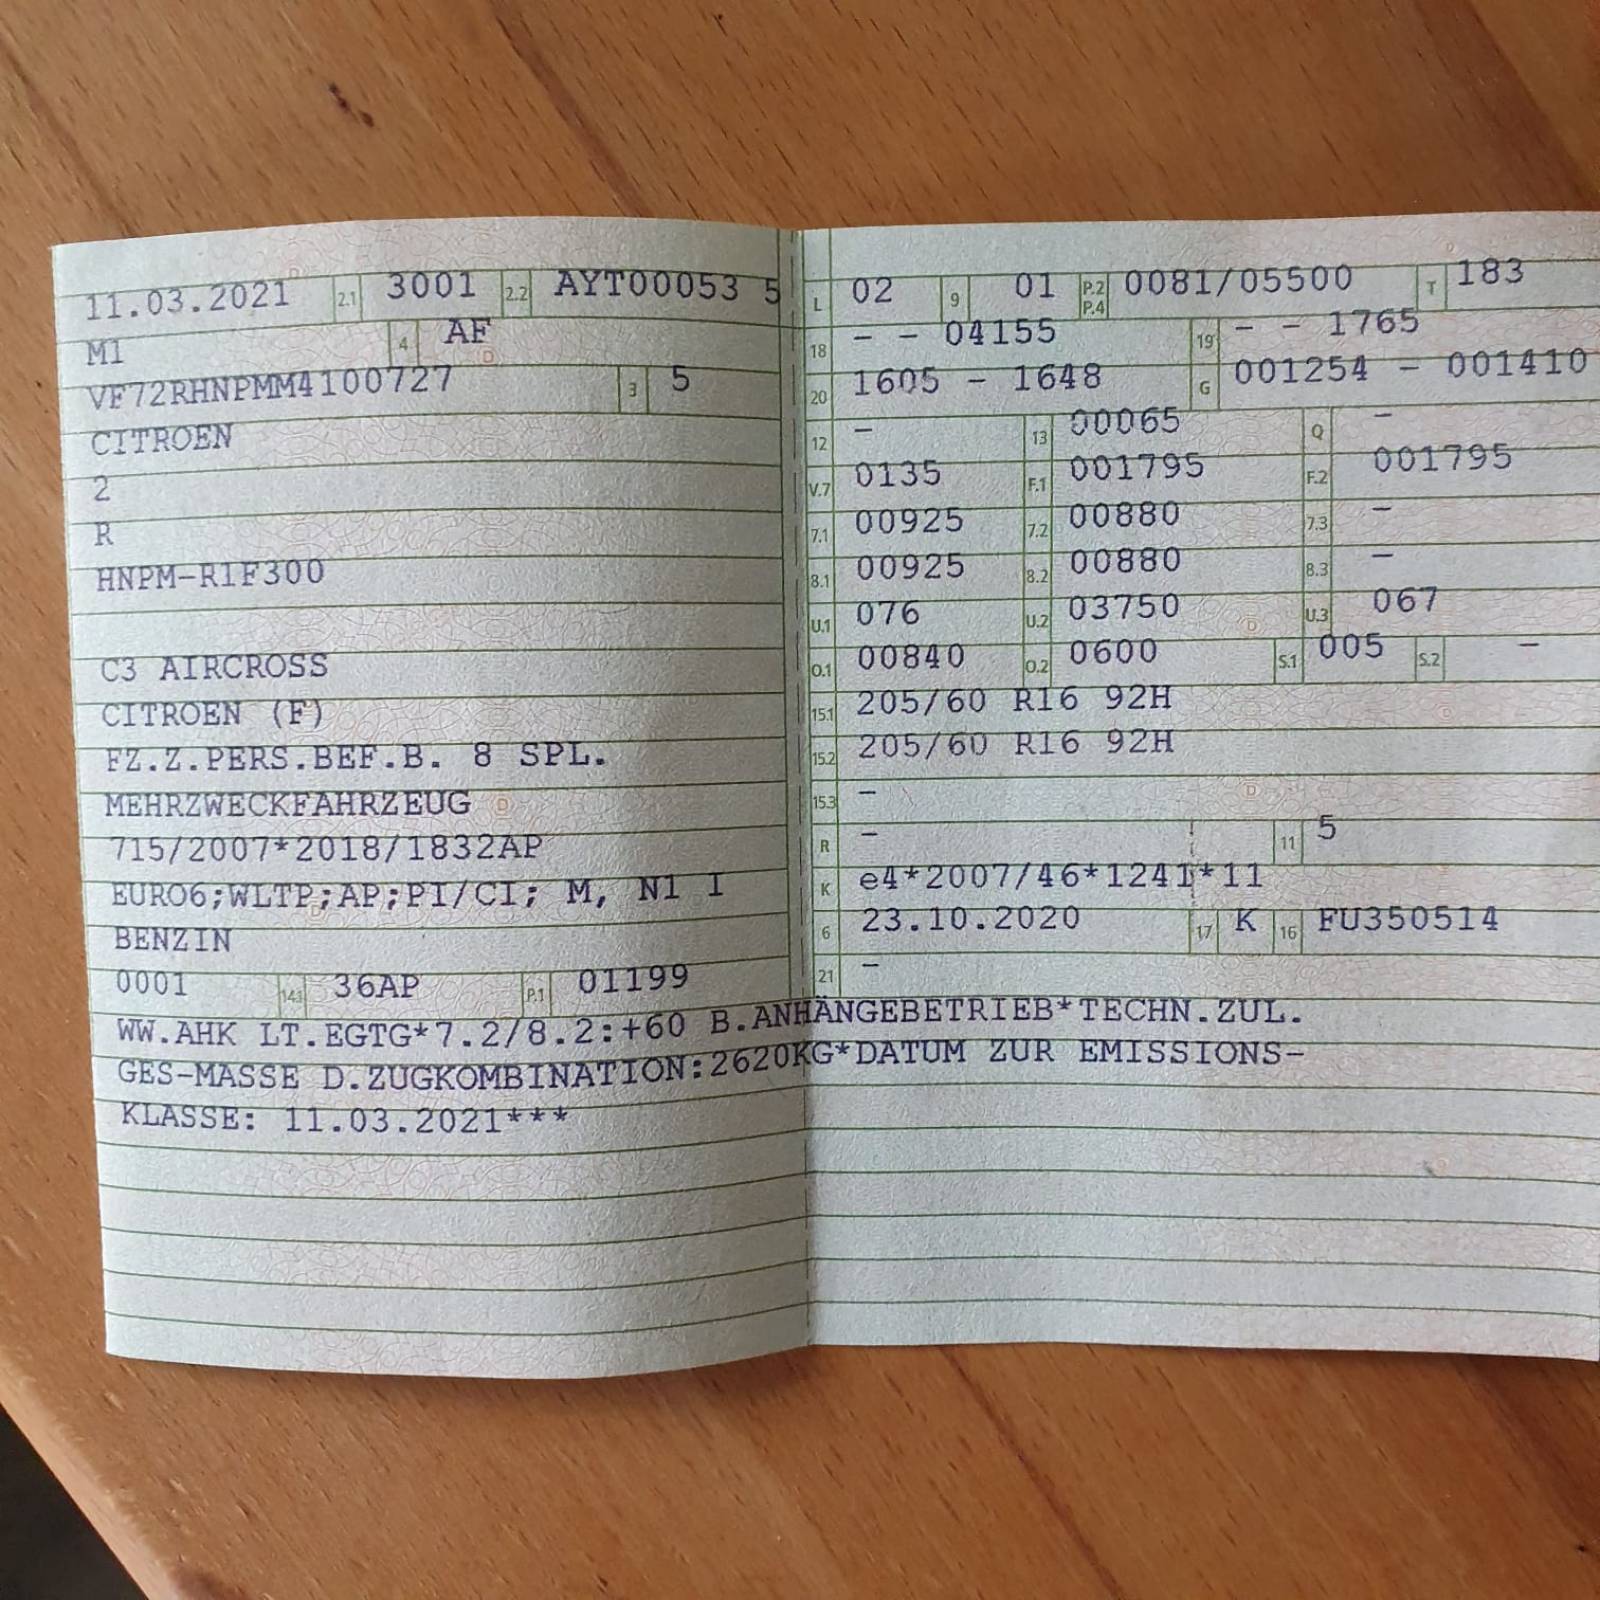 11.03.2021 2.1 3001 2.2 AYT00053 5
M1 4 AF
VF72RHNPMM4100727 3 5
CITROEN
2
R
HNPM-R1F300
C3 AIRCROSS
CITROEN (F)
FZ.Z.PERS.BEF.B. 8 SPL.
MEHRZWECKFAHRZEUG
715/2007*2018/1832AP
EURO6;WLTP;AP;PI/CI; M, N1 I
BENZIN
0001 14.1 36AP P.1 01199
L 02 9 01 P.2 P.4 0081/05500 T 183
18 - - 04155 19 - - 1765
20 1605 - 1648 G 001254 - 001410
12 - 13 00065 Q -
V.7 0135 F.1 001795 F.2 001795
7.1 00925 7.2 00880 7.3 -
8.1 00925 8.2 00880 8.3 -
U.1 076 U.2 03750 U.3 067
O.1 00840 O.2 0600 S.1 005 S.2 -
15.1 205/60 R16 92H
15.2 205/60 R16 92H
15.3 -
R - 11 5
K e4*2007/46*1241*11
6 23.10.2020 17 K 16 FU350514
21 -
WW.AHK LT.EGTG*7.2/8.2:+60 B.ANHÄNGEBETRIEB*TECHN.ZUL.
GES-MASSE D.ZUGKOMBINATION:2620KG*DATUM ZUR EMISSIONS-
KLASSE: 11.03.2021***